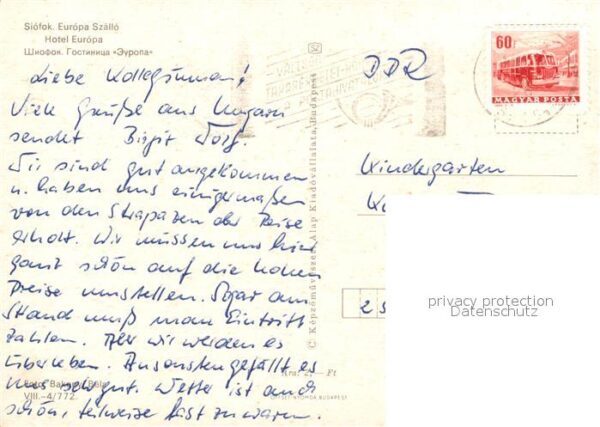 Siófok. Európa Szálló
Hotel Európa
Шиофок. Гостиница «Эуропа»
Liebe Kolleginnen!
Viele Grüße aus Ungarn
sendet Birgit
Wir sind gut angekommen
u. haben uns einigermaßen
von den Strapazen der Reise
erholt. Wir müssen uns hier
ganz schön auf die hohen
Preise umstellen. Sogar am
Strand muß man Eintritt
zahlen. Aber wir werden es
überleben. Ansonsten gefällt es
uns sehr gut. Wetter ist auch
schön, teilweise fast zu warm.
VIII.–4/772
© Képzőművészeti Alap Kiadóvállalata, Budapest
Ft
DDR
60f
MAGYAR POSTA
Kindergarten
privacy protection
Datenschutz